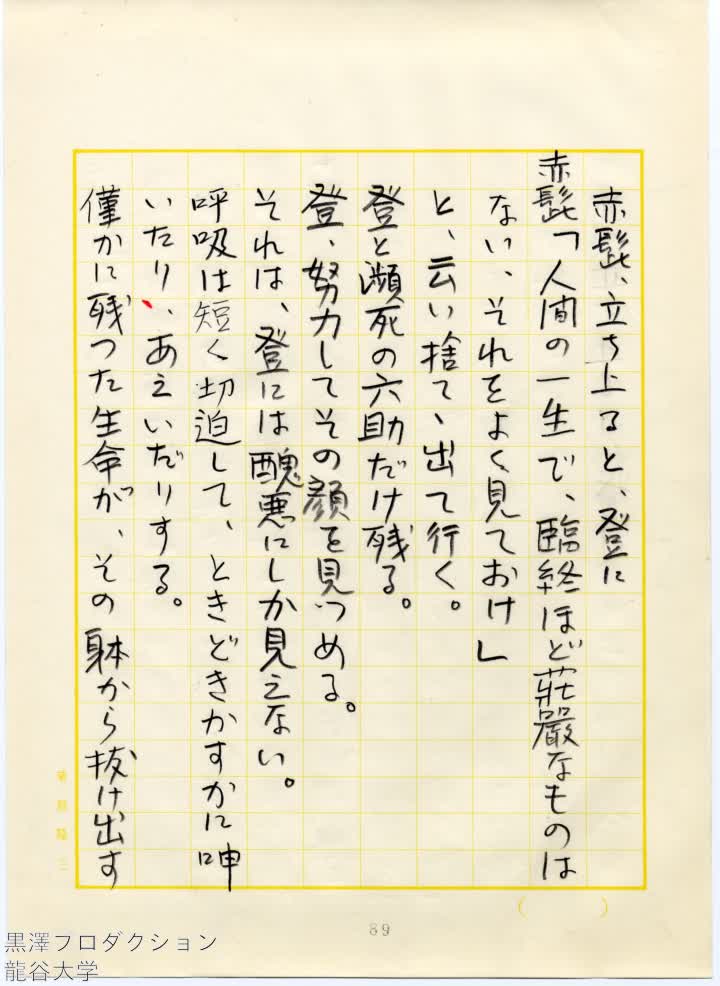 赤髭、立ち上ると、登に
赤髭「人間の一生で、臨終ほど荘厳なものは
ない、それをよく見ておけ」
と、云い捨て、出て行く。
登と瀕死の六助だけ残る。
登、努力してその顔を見つめる。
それは、登には醜悪にしか見えない。
呼吸は短く切迫して、ときどきかすかに呻
いたり、あえいだりする。
僅かに残った生命が、その躰から抜け出す
89
黒澤プロダクション
龍谷大学